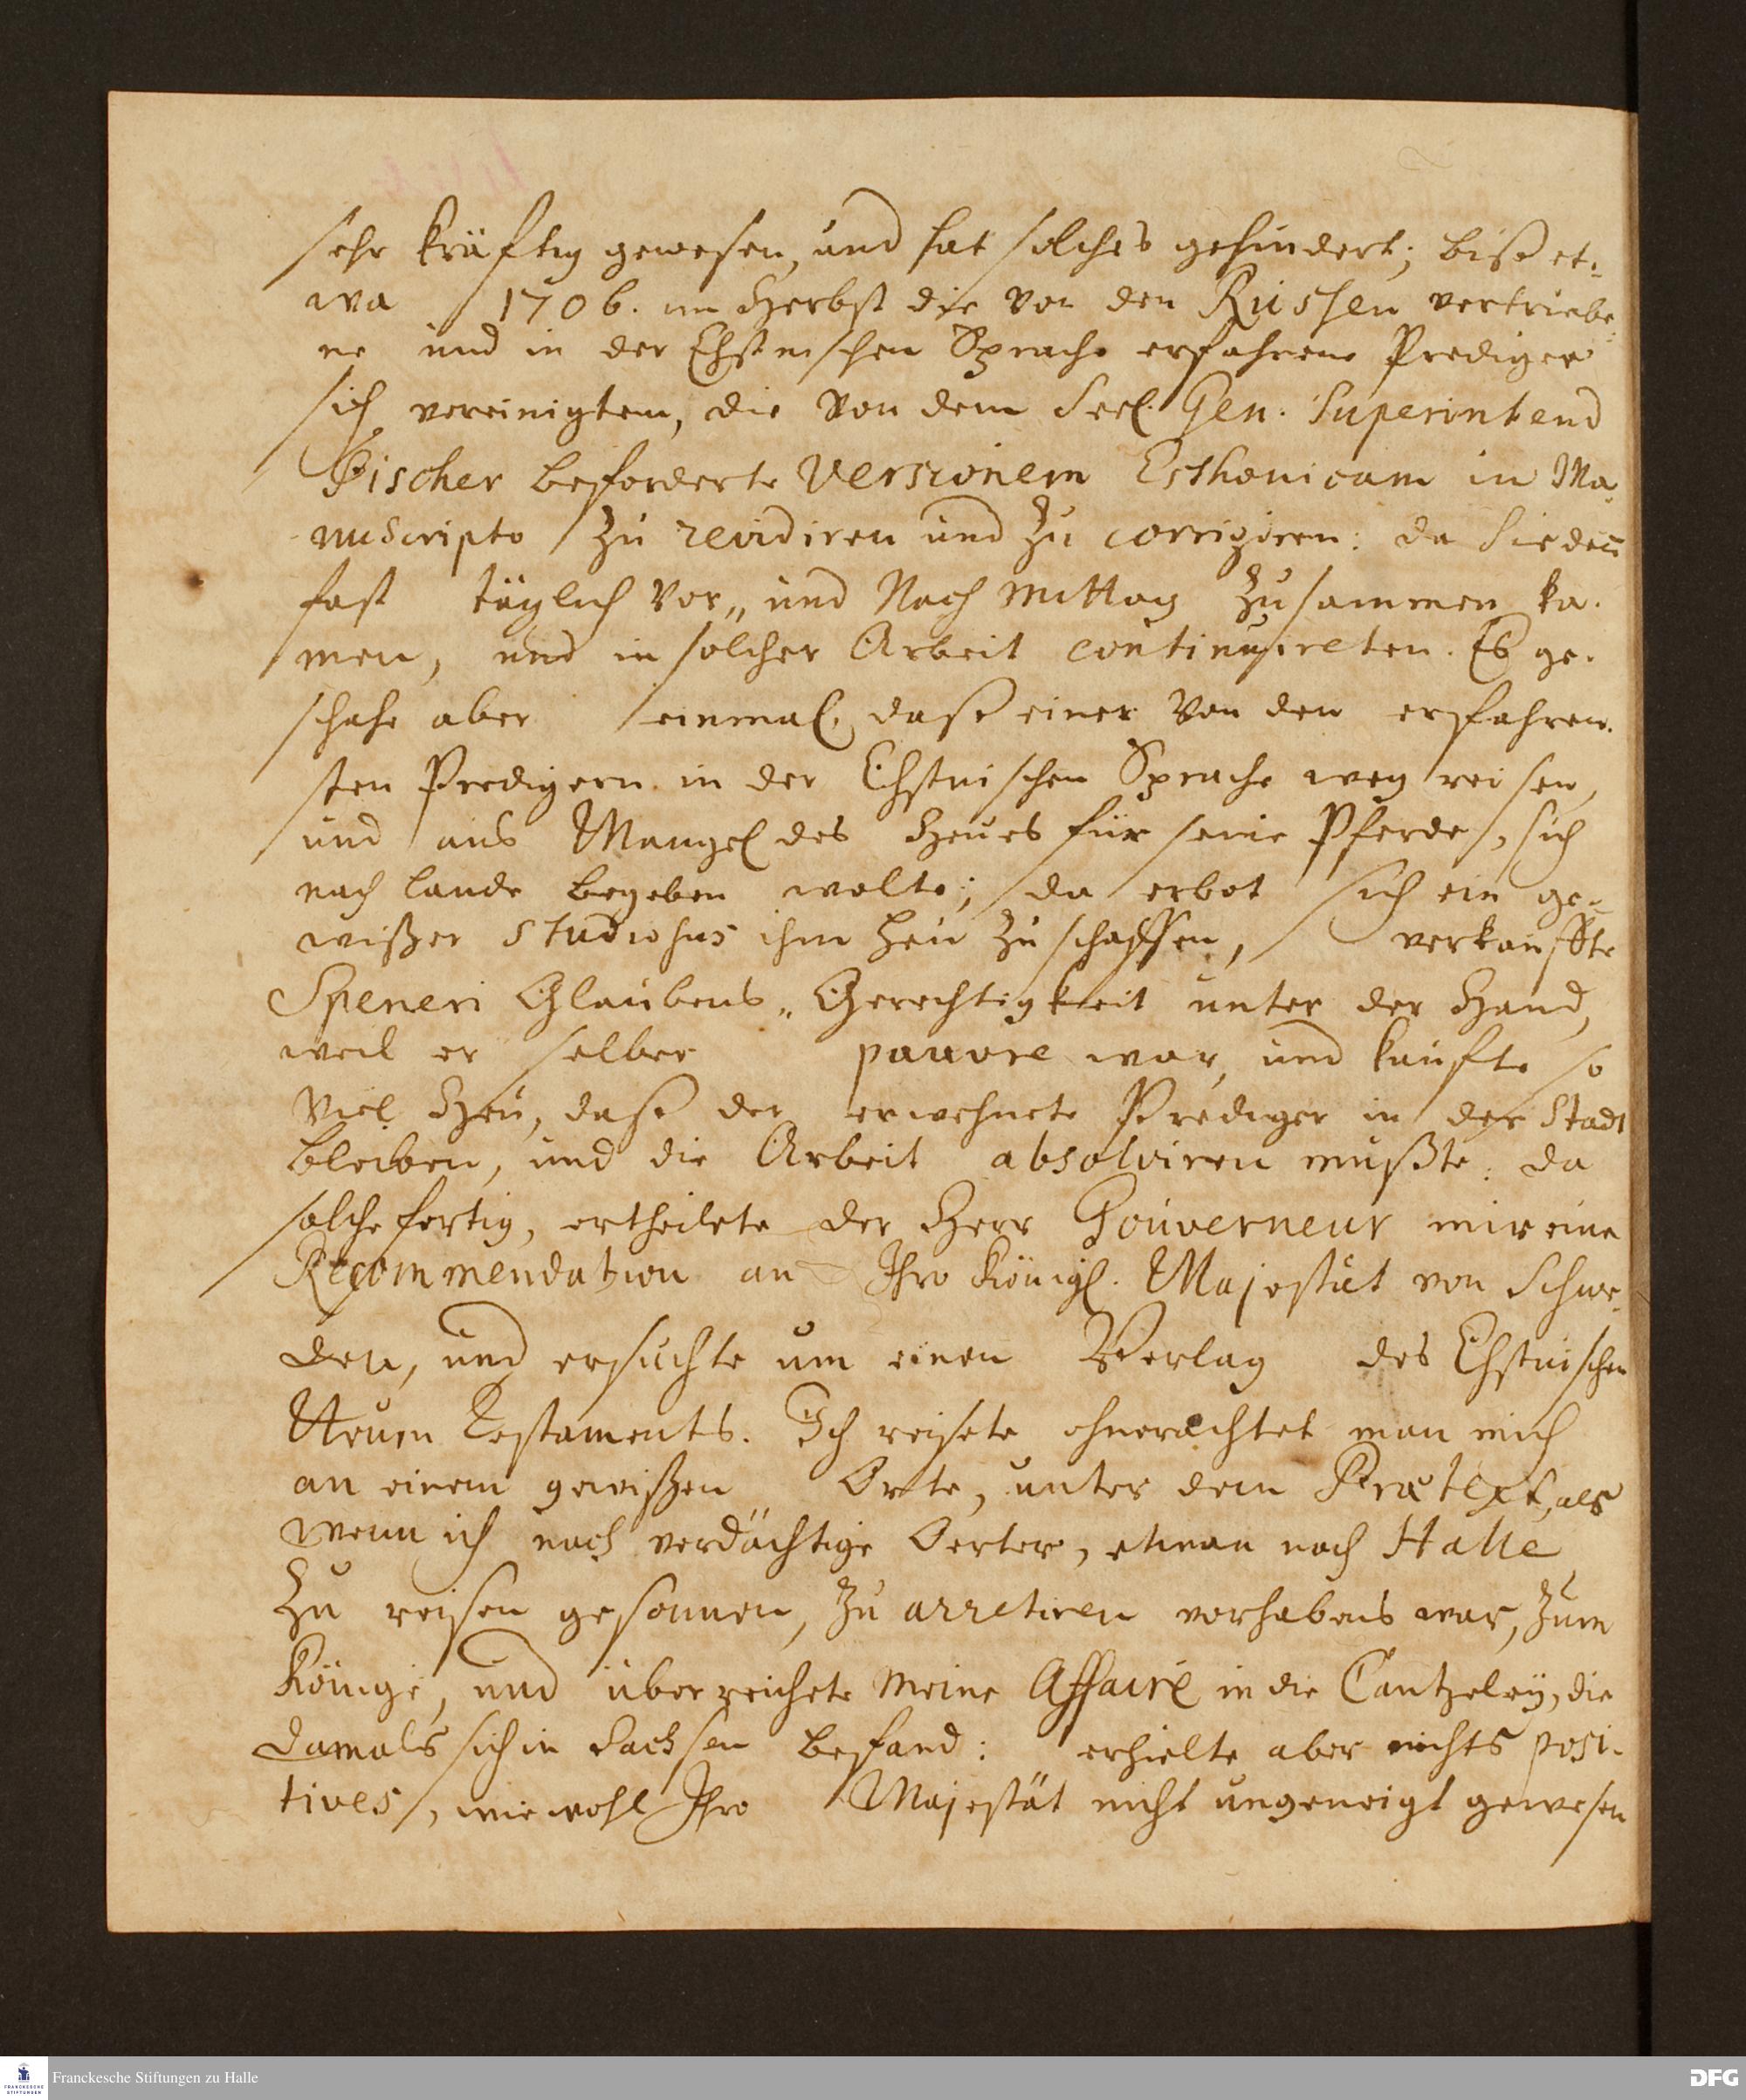 sehr kräftig gewesen, und hat solches gehindert; biß et-
wa 1706. im Herbst die von den Russen vertriebe-
ne und in der Ehstnischen Sprache erfahrene Prediger
sich vereinigten, die von dem Seel. Gen. Superintend
Fischer beforderte Versionem Esthonicam in Ma-
nuscripto zu revidiren und zu corrigiren: da Sie deñ
fast täglich Vor„ und Nach Mittag zusammen ka-
men, und in solcher Arbeit continuireten. Es ge-
schahe aber einmal, daß einer von den erfahren-
sten Predigern in der Ehstnischen Sprache weg reisen,
und aus Mangel des Heues für seine Pferde, sich
nach Lande begeben wolte; da erbot sich ein ge-
wißer Studiosus ihm Heu zu schaffen, verkauffte
Speneri Glaubens„ Gerechtigkeit unter der Hand,
weil er selber pauvre war, und kaufte so
viel Heu, daß der erwehnete Prediger in der Stadt
bleiben, und die Arbeit absolviren mußte: da
solche fertig, ertheilete der Herr Gouverneur mir eine
Recommendation an Ihro Königl. Majestät von Schwe-
den, und ersuchte um einen Verlag des Ehstnischen
Neuen Testaments. Ich reisete ohnerachtet man mich
an einem gewißen Orte, unter dem Prætext, als
wenn ich nach verdächtige Oerter, etwan nach Halle
zu reisen gesonnen, zu arretiren vorhabens war, zum
Könige, und überreichete meine Affaire in die Cantzeley, die
damals sich in Sachsen befand: erhielte aber nichts posi-
tives, wiewohl Ihro Majestät nicht ungeneigt gewesen
Franckesche Stiftungen zu Halle
FRANCKESCHE STIFTUNGEN
DFG